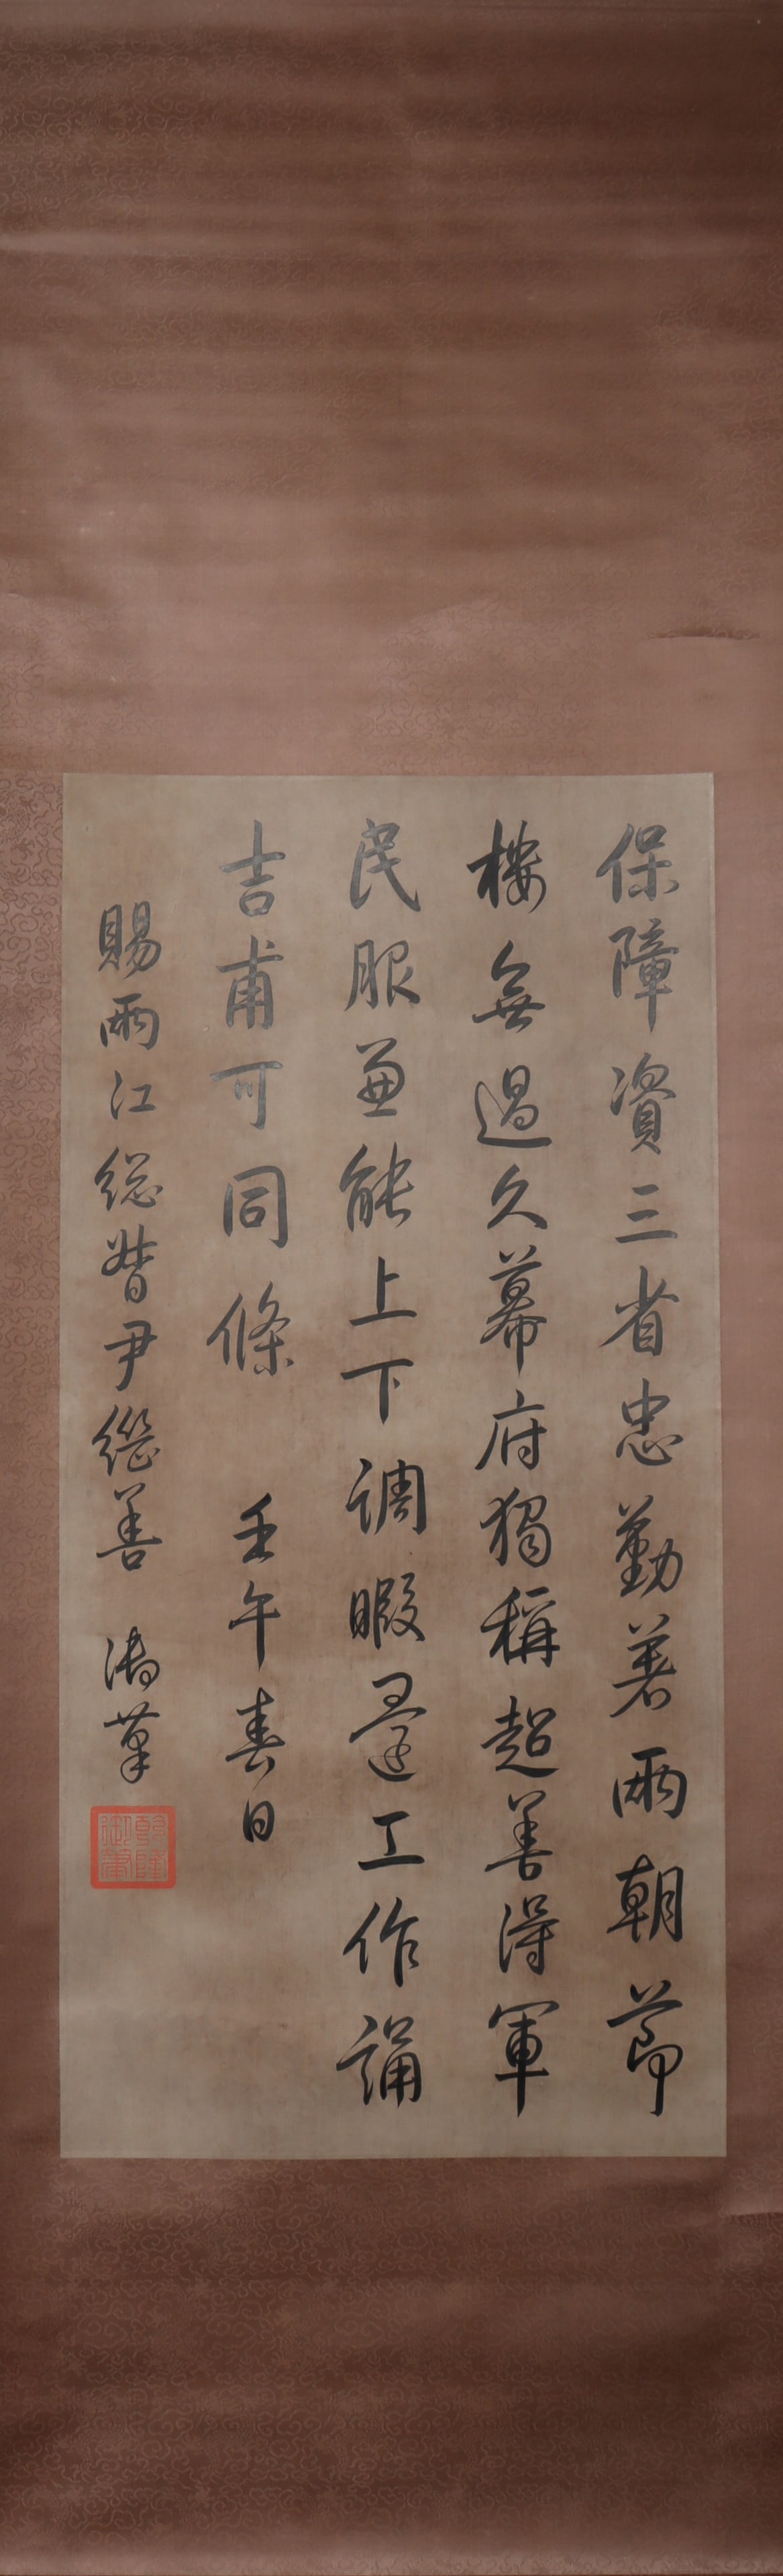 保障資三省忠勤著兩朝節
樓無過久幕府獨稱超善得軍
民服兼能上下調暇還工作誦
吉甫可同條 壬午春日
賜兩江總督尹繼善 御筆
乾隆御筆